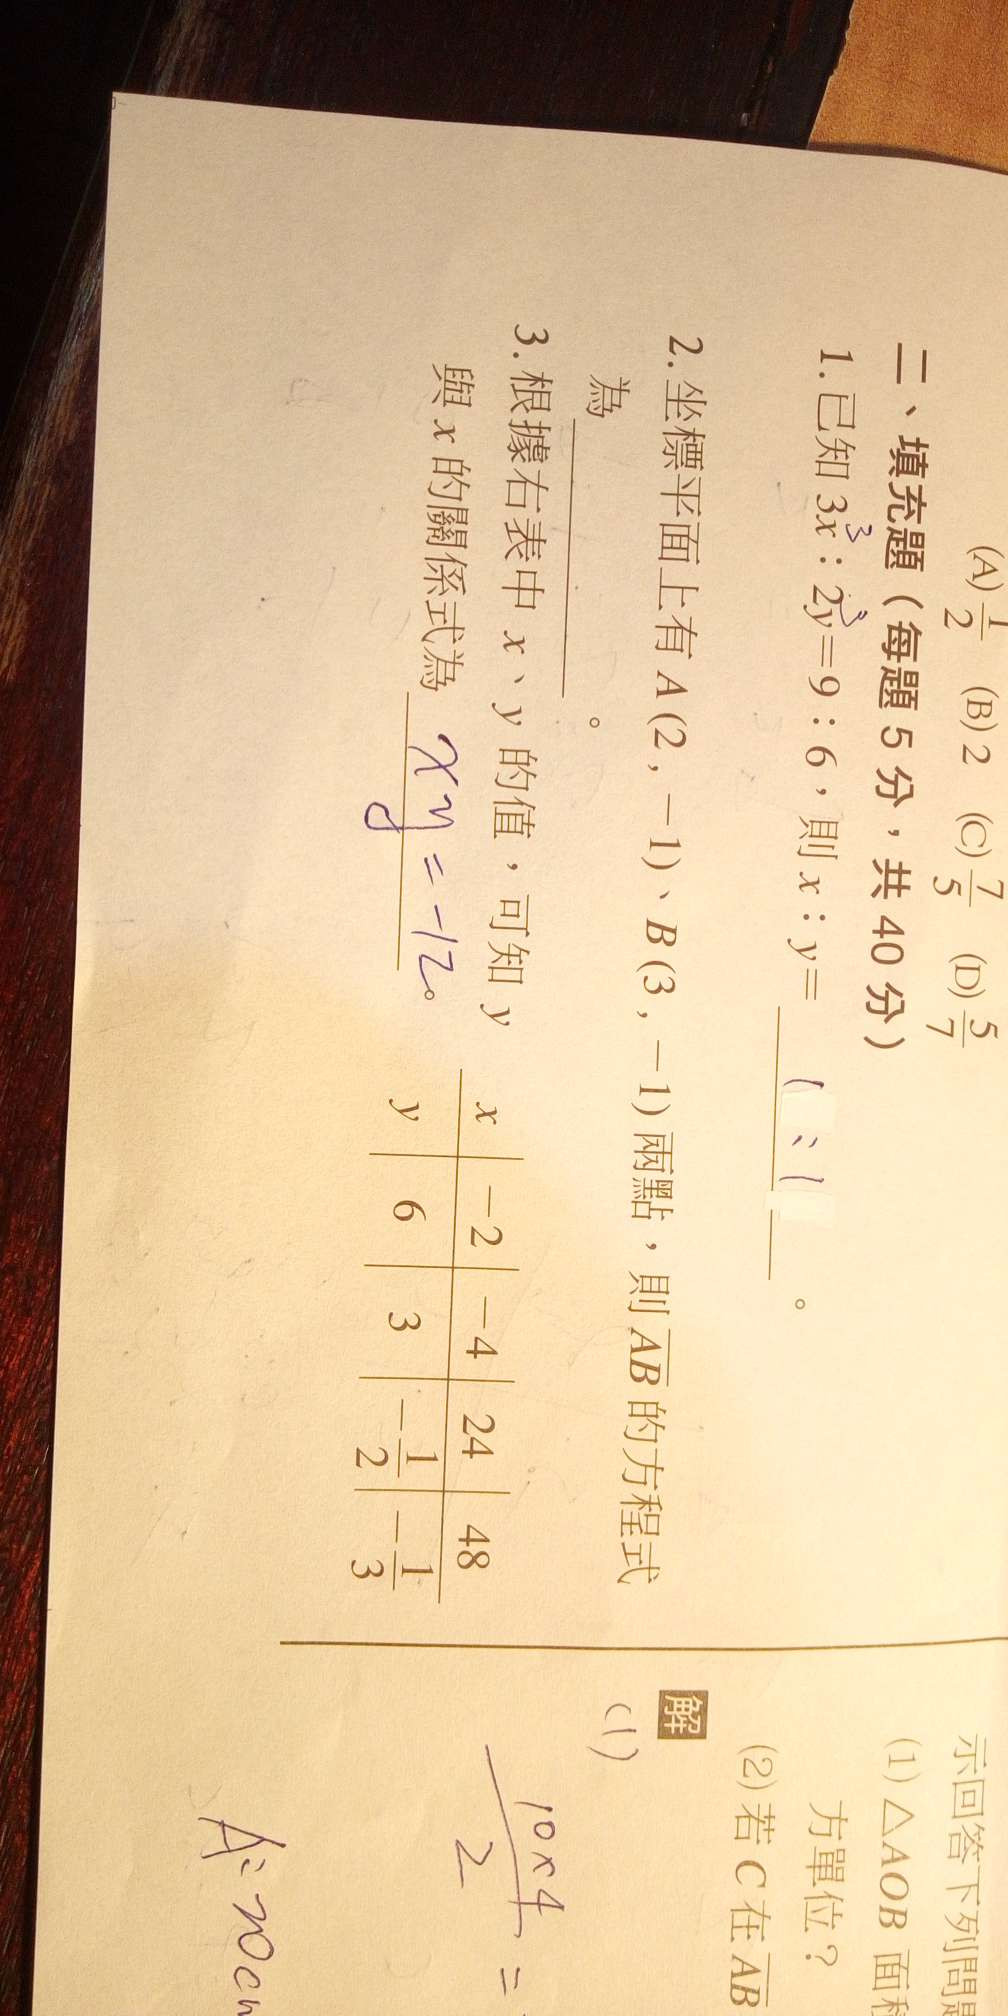 (A) 1/2 (B) 2 (C) 7/5 (D) 5/7
二、填充題（每題 5 分，共 40 分）
1. 已知 3x：2y=9：6，則 x：y= 1：1 。
3 3
2. 坐標平面上有 A(2，-1)、B(3，-1) 兩點，則 AB 的方程式
為 。
3. 根據右表中 x、y 的值，可知 y
與 x 的關係式為 xy=-12。
x -2 -4 24 48
y 6 3 -1/2 -1/3
示回答下列問
(1) △AOB 面
方單位？
(2) 若 C 在 AB
解
(1)
10×4/2 =
A: 20cm